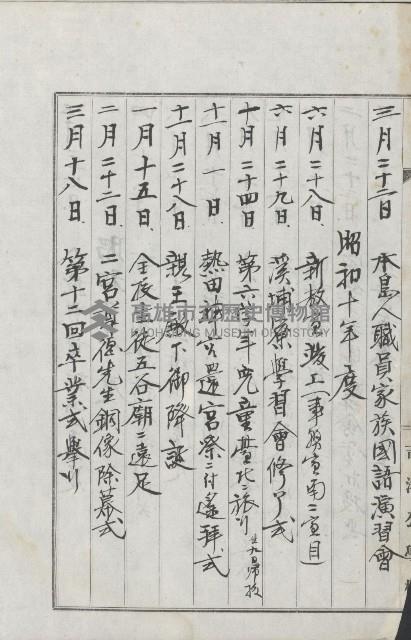 三月二十三日 本島人職員家族國語演習會
昭和十年度
六月二十八日 新校舍竣工(事務室南二室目)
六月二十九日 溪埔寮學習會修了式
十月二十四日 第六學年児童臺北ニ旅行 廿九日帰校
十一月一日 熱田神宮遷宮祭ニ付遙拜式
十一月二十八日 親王殿下御降誕
一月十五日 全校生徒五谷廟ニ遠足
二月二十二日 二宮尊德先生銅像除幕式
三月十八日 第十二回卒業式擧行
高雄市立歷史博物館
KAOHSIUNG MUSEUM OF HISTORY